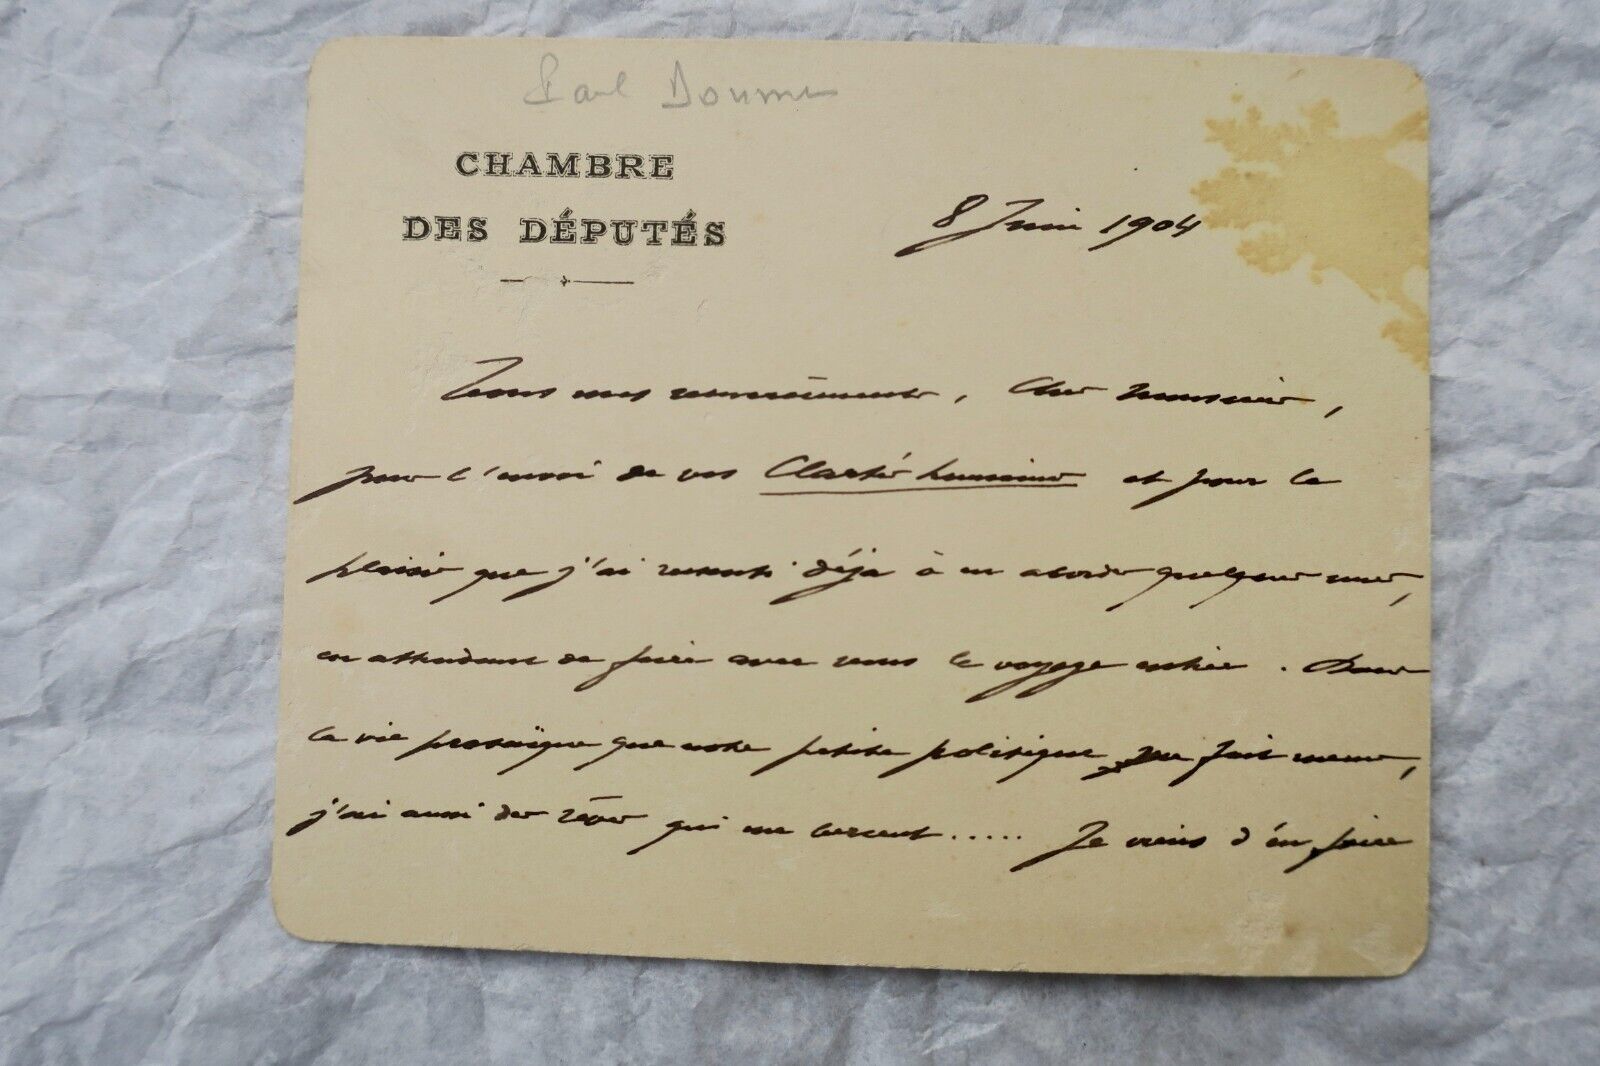 Paul Doumer
CHAMBRE
DES DÉPUTÉS
8 Juin 1904
Tous mes remerciements, Cher Monsieur,
pour l'envoi de vos Clartés humaines et pour le
plaisir que j'ai ressenti déjà à en aborder quelques unes,
en attendant de faire avec vous le voyage entier. Dans
la vie prosaïque que notre petite politique me fait mener,
j'ai aussi des rêves qui me bercent..... Je viens d'en faire